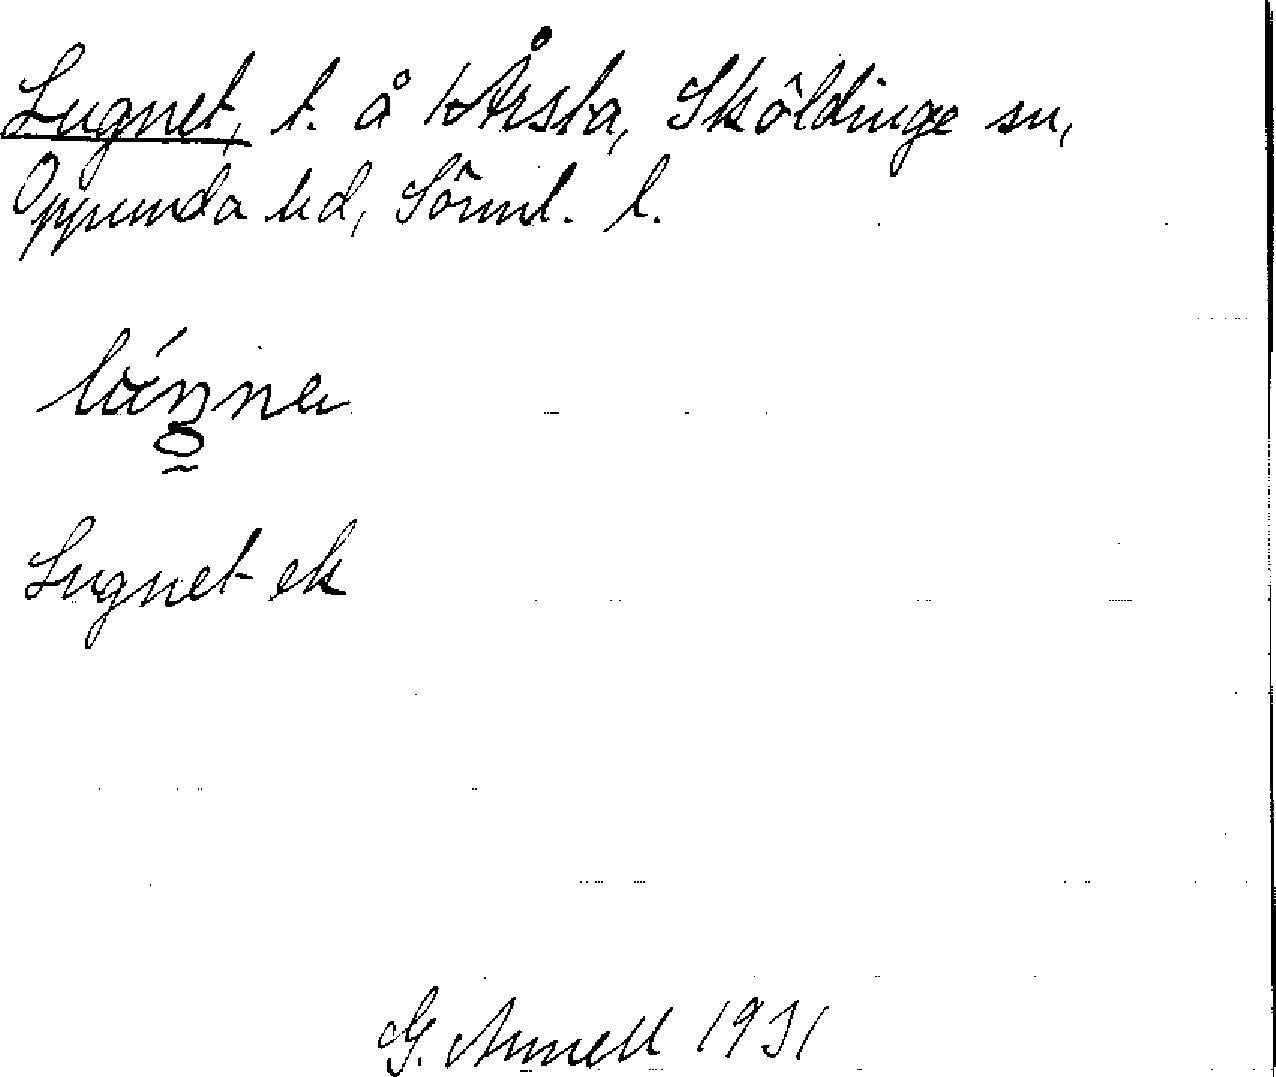 Lugnet, t. å Årsta, Sköldinge sn,
Oppunda hd, Sörml. l.
Lugnet ek
G. Annell 1931